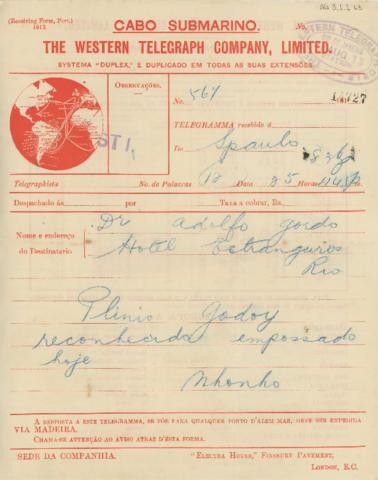 (Receiving Form, Port.)
1913.
CABO SUBMARINO.
No.
THE WESTERN TELEGRAPH COMPANY, LIMITED.
SYSTEMA "DUPLEX," E DUPLICADO EM TODAS AS SUAS EXTENSÕES
OBSERVAÇÕES.
No. 567
TELEGRAMMA recebido á
De Spaulo
ST I.
Telegraphista No. de Palavras 12 Data 25 Horas
Despachado ás por Taxa a cobrar, Rs.
Nome e endereço do Destinatario
Dr Adolfo Gordo
Hotel Estrangeiros
Rio
Plinio Godoy
reconhecido empossado
hoje
Nhonho
A RESPOSTA A ESTE TELEGRAMMA, SE FÔR PARA QUALQUER PONTO D'ALEM-MAR, DEVE SER EXPEDIDA
VIA MADEIRA.
CHAMA-SE ATTENÇÃO AO AVISO ATRAZ D'ESTA FORMA.
SEDE DA COMPANHIA. "ELECTRA HOUSE," FINSBURY PAVEMENT,
LONDON, E.C.